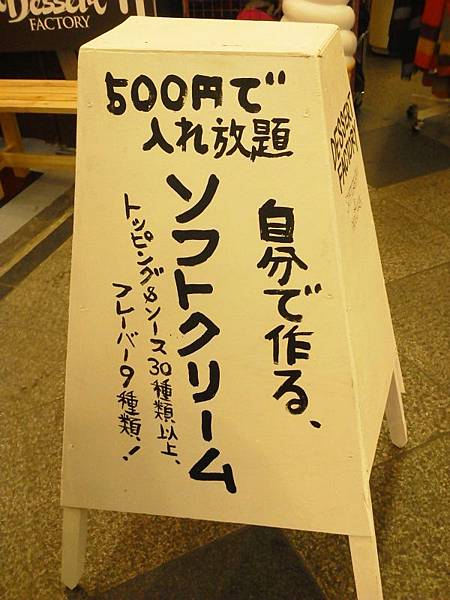 Dessert
FACTORY
500円で
入れ放題
自分で作る、
ソフトクリーム
トッピング&ソース30種類以上、
フレーバー9種類、!
DESSERT
FACTORY